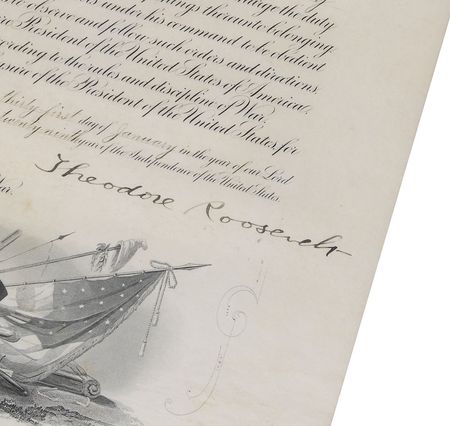 charge the duty
things thereunto belonging.
under his command to be obedient
to observe and follow such orders and directions,
President of the United States of America,
according to the rules and discipline of War.
pleasure of the President of the United States for
thirty first day of January in the year of our Lord
twenty ninth year of the Independence of the United States.
Theodore Roosevelt
War.